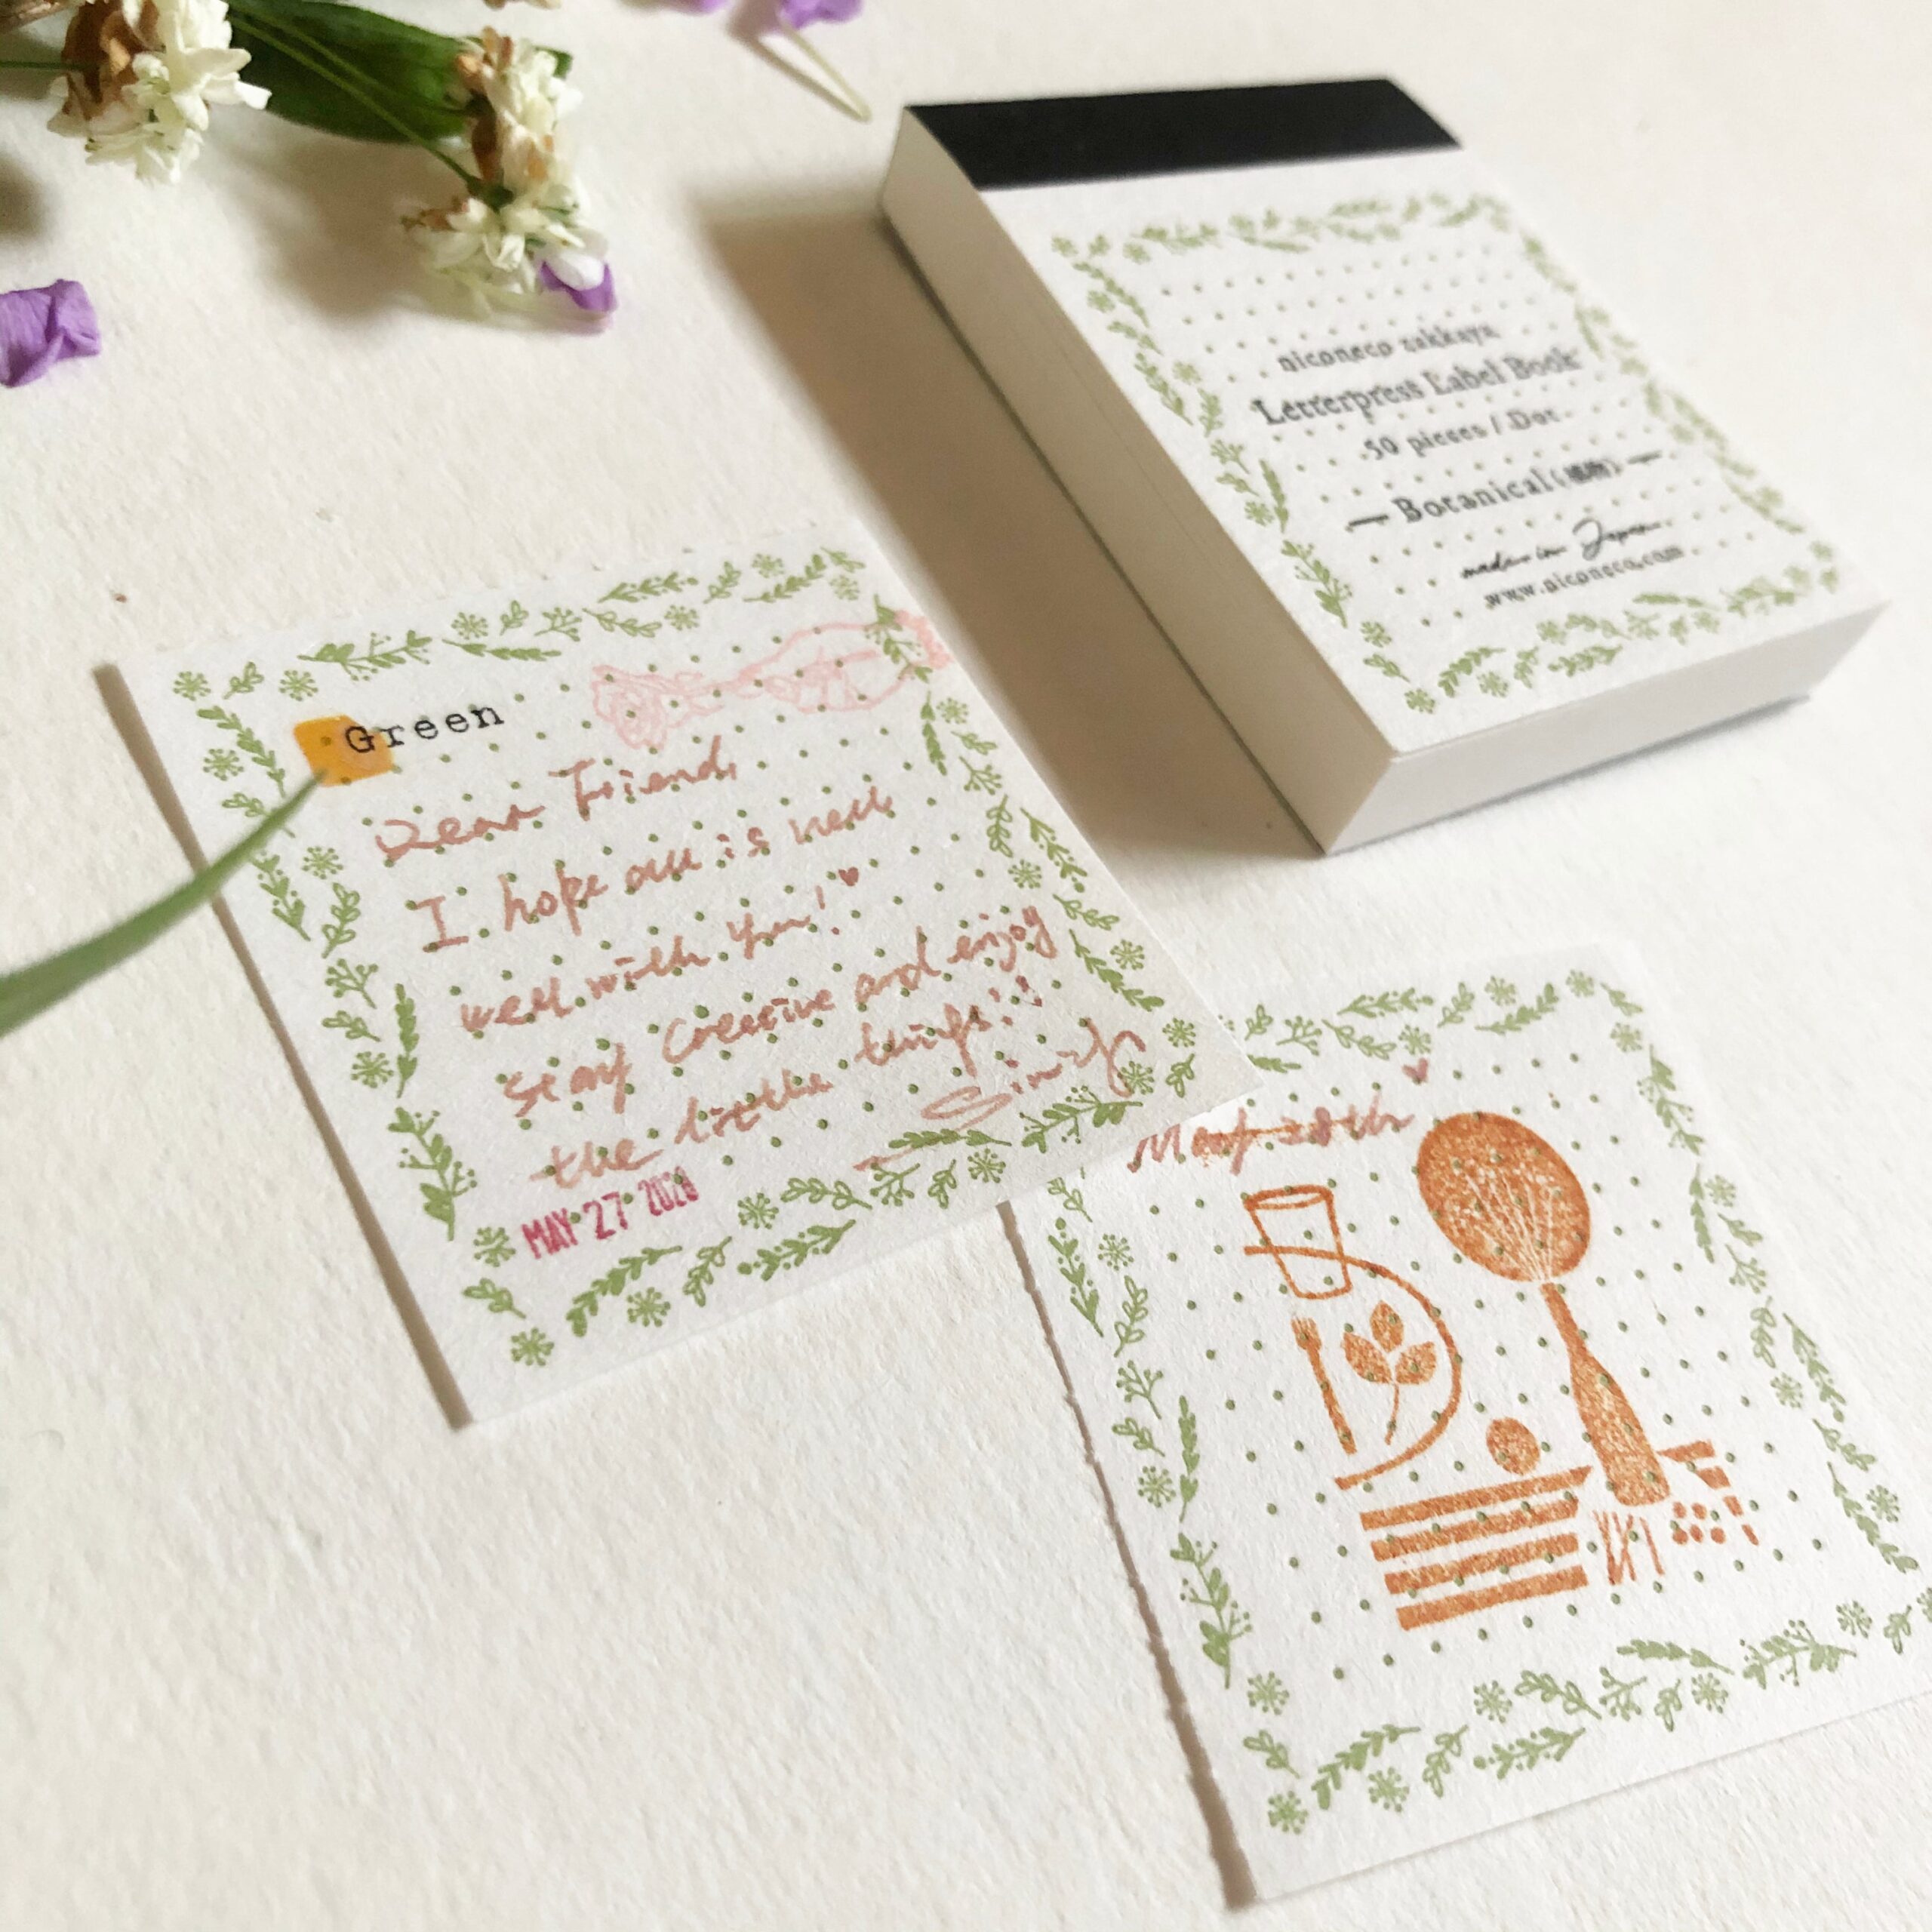 niconeco zakkaya
Letterpress Label Book
50 pieces / Dot
Botanical (植物)
made in Japan
www.niconeco.com
Green
Dear Friend,
I hope all is well
well with you!
Stay Creative and enjoy
the little things!
MAY 27 2020
May 28th